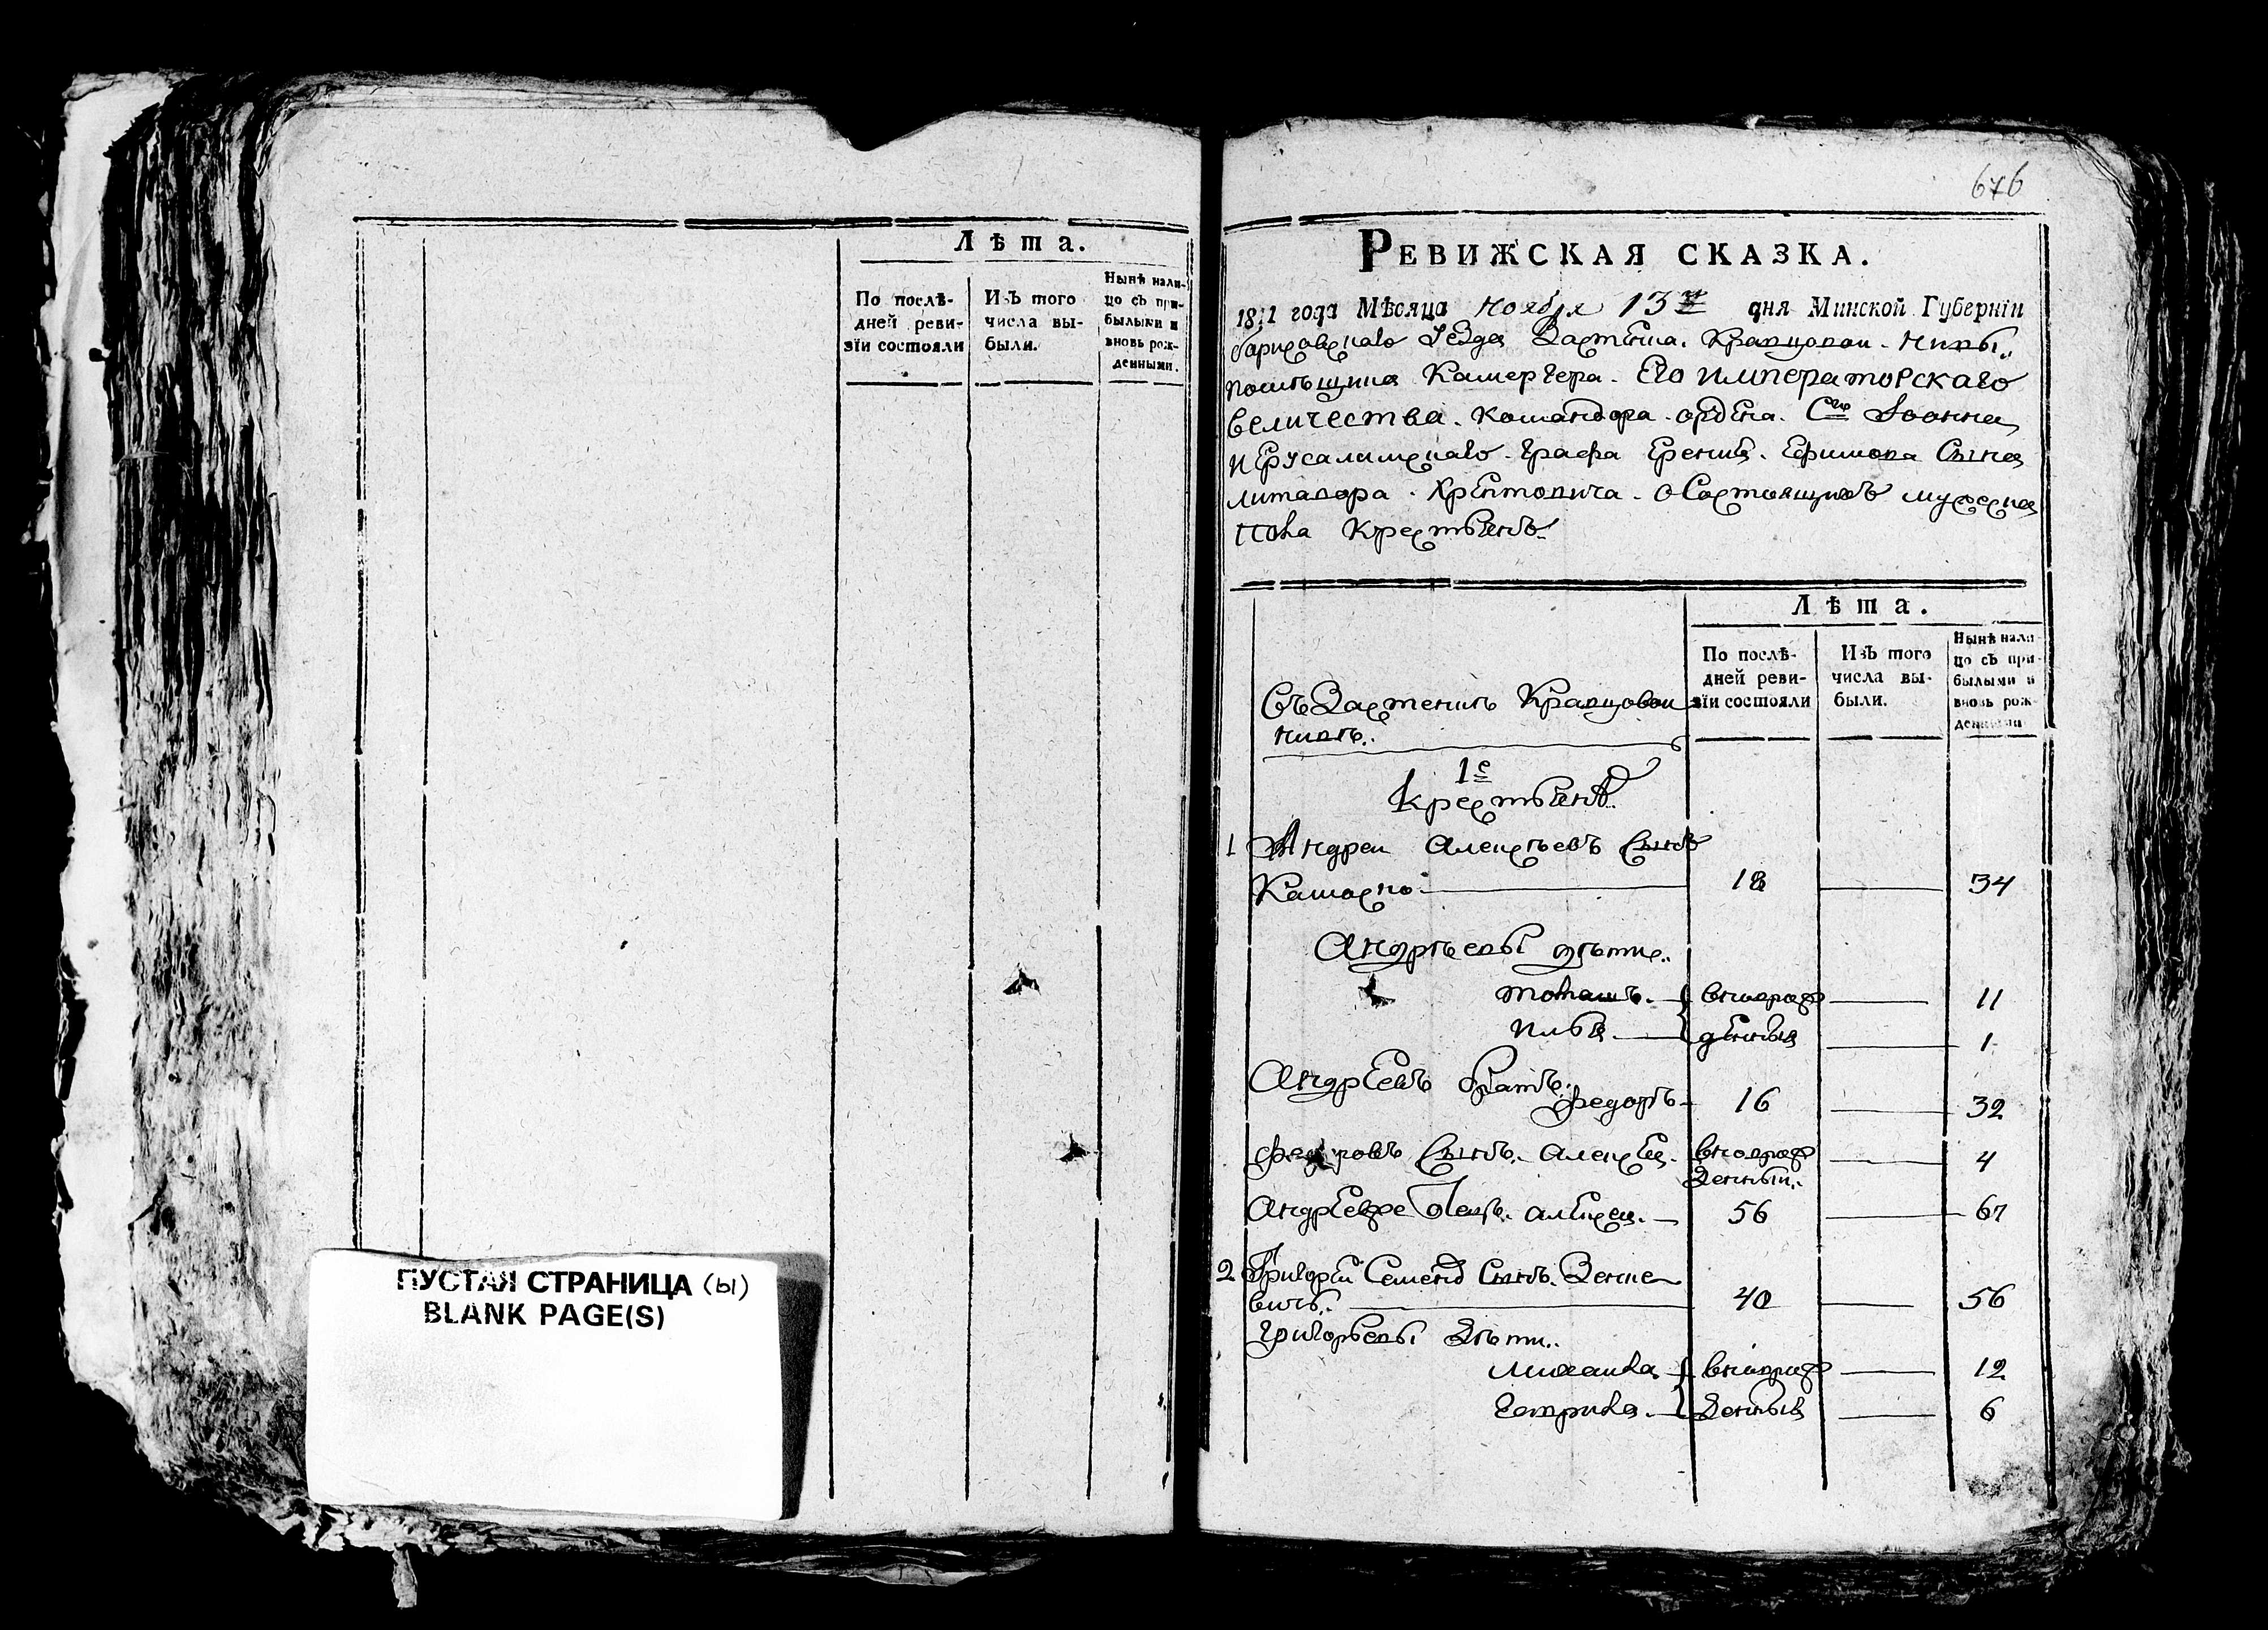 Лѣта.
По послѣ-
дней реви-
зїи состояли
Изъ того
числа вы-
были.
Нынѣ нали-
цо съ при-
былыми и
вновь рож-
денными.
ПУСТАЯ СТРАНИЦА (ы)
BLANK PAGE(S)
676
Ревижская сказка.
1811 года Мѣсяца ноября 13го дня Минской Губернїи
борисовскаго уезда Застенка Кравцовои нивы
помѣщика Камергера Его императорскаго
величества командора ордена Сго Іоанна
иерусалимскаго графа Ефимова Сына
литавора Хрептовича о Састоящихъ мужеска
пола Крестьянъ
Лѣта.
По послѣ-
дней реви-
зїи состояли
Изъ того
числа вы-
были.
Нынѣ нали
цо съ при-
былыми и
вновь рож-
денными
Въ Застенкѣ Кравцовои
нивѣ
1е
Крестьянъ
1 Андреи Алексѣевъ Сынъ
18 34
Андрѣевы дѣти
томашъ вновѣрож 11
илья денныя 1
Андреевъ братъ
федоръ 16 32
федоровъ Сынъ алексеи вноврож 4
денныи
Андреевъ Отецъ алексеи 56 67
2 Григореи Семенов Сынъ Зенке
вичъ 40 56
григорьевы дѣти
михаила вноврож 12
гаврила денныя 6